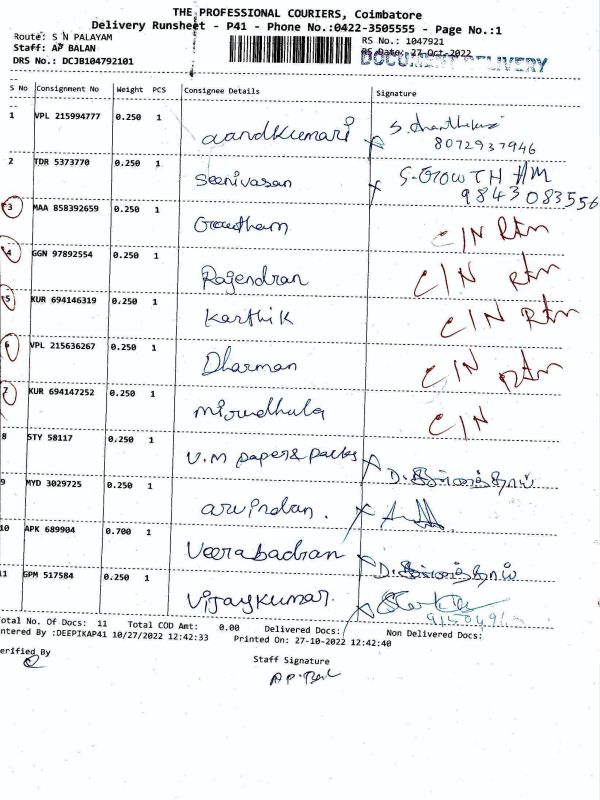 THE PROFESSIONAL COURIERS, Coimbatore
Delivery Runsheet - P41 - Phone No.:0422-3505555 - Page No.:1
Route: S N PALAYAM
RS No.: 1047921
Staff: AP BALAN
RS Date: 27-Oct-2022
DOCUMENT DELIVERY
DRS No.: DCJB104792101
S No Consignment No Weight PCS Consignee Details Signature
1 VPL 215994777 0.250 1 aandkumari
8072937946
2 TDR 5373770 0.250 1 Seenivasan S-GROWTH HM
9843083556
3 MAA 858392659 0.250 1 Goutham C/N Rtn
4 GGN 97892554 0.250 1 Rajendran C/N Rtn
5 KUR 694146319 0.250 1 Karthik C/N Rtn
6 VPL 215636267 0.250 1 Dharman C/N Rtn
7 KUR 694147252 0.250 1 mirudhula C/N
8 STY 58117 0.250 1 V.M paper & packs
9 MYD 3029725 0.250 1 arvindan.
10 APK 689904 0.700 1 Veerabadran
11 GPM 517584 0.250 1 Vijaykumar.
otal No. Of Docs: 11 Total COD Amt: 0.00 Delivered Docs: Non Delivered Docs:
ntered By :DEEPIKAP41 10/27/2022 12:42:33 Printed On: 27-10-2022 12:42:40
erified By
Staff Signature
A P. Bal